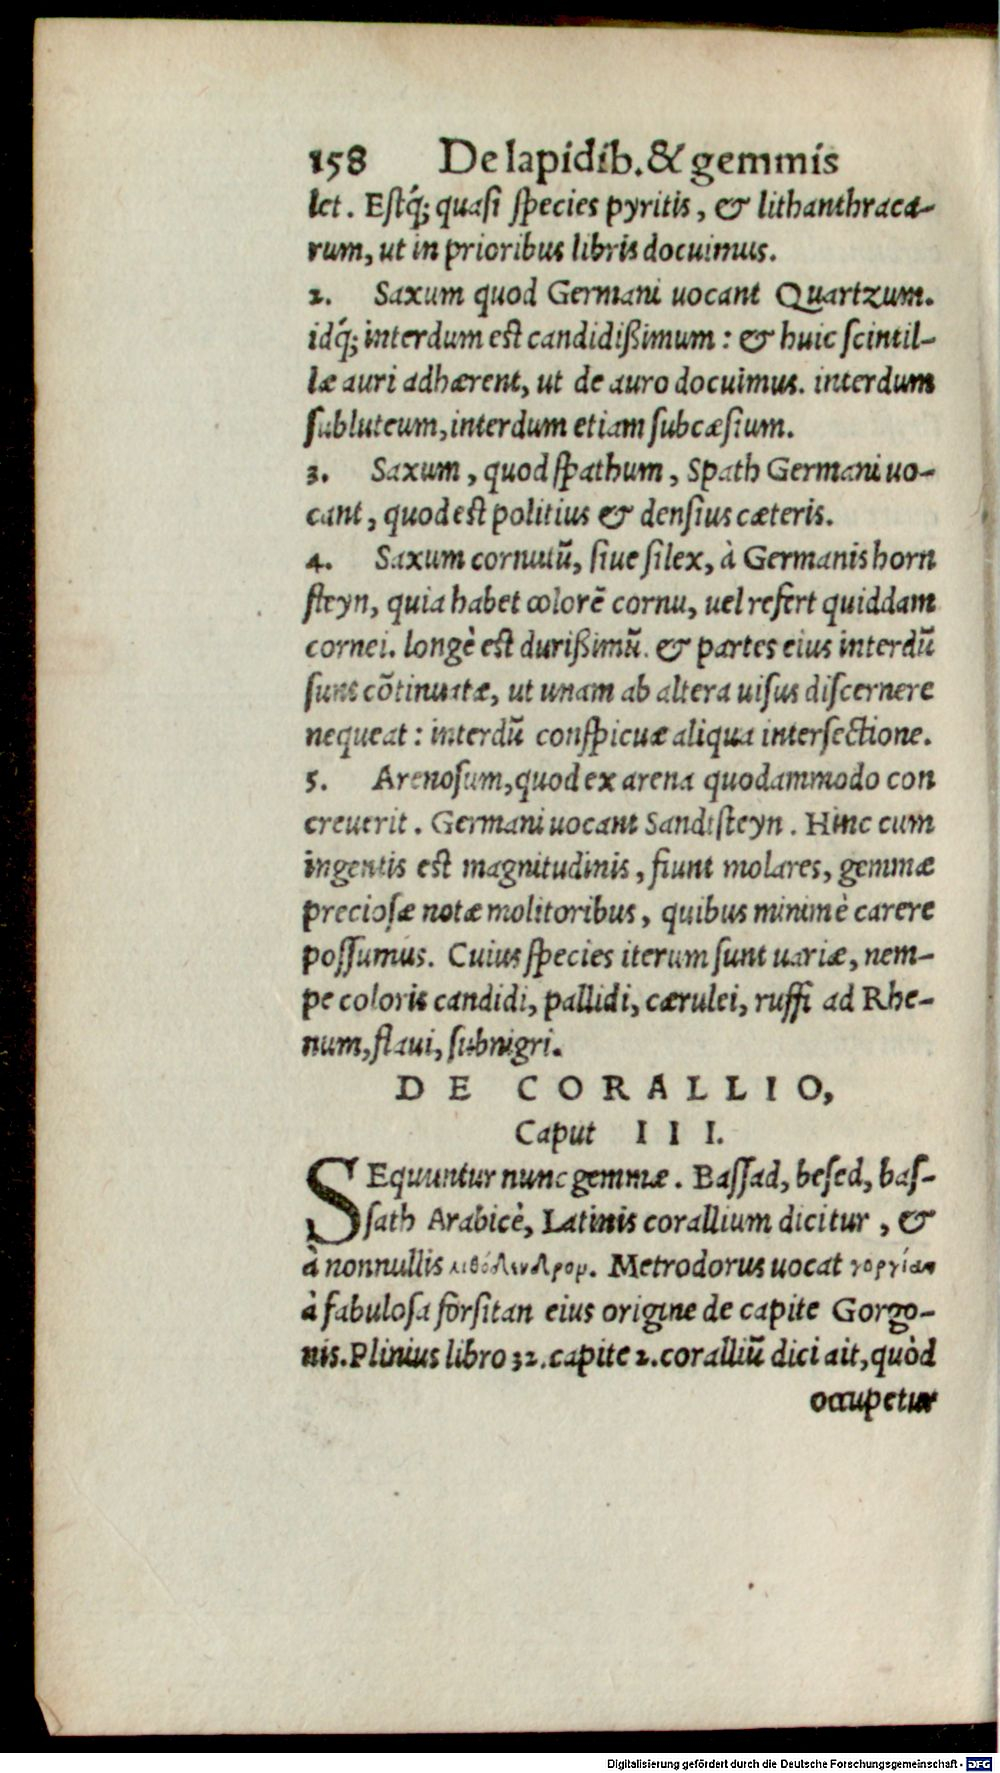 158 De lapidib. & gemmis
let. Estq́; quasi species pyritis, & lithanthraca-
rum, ut in prioribus libris docuimus.
2. Saxum quod Germani uocant Quartzum.
idq́; interdum est candidißimum: & huic scintil-
læ auri adhærent, ut de auro docuimus. interdum
subluteum, interdum etiam subcæsium.
3. Saxum, quod spathum, Spath Germani uo-
cant, quod est politius & densius cæteris.
4. Saxum cornutū, siue silex, à Germanis horn
steyn, quia habet colorē cornu, uel refert quiddam
cornei. longè est durißimū. & partes eius interdū
sunt cōtinuatæ, ut unam ab altera uisus discernere
nequeat: interdū conspicuæ aliqua intersectione.
5. Arenosum, quod ex arena quodammodo con
creuerit. Germani uocant Sandtsteyn. Hinc cum
ingentis est magnitudinis, fiunt molares, gemmæ
preciosæ notæ molitoribus, quibus minimè carere
possumus. Cuius species iterum sunt uariæ, nem-
pe coloris candidi, pallidi, cærulei, ruffi ad Rhe-
num, flaui, subnigri.
DE CORALLIO,
Caput III.
SEquuntur nunc gemmæ. Bassad, besed, bas-
sath Arabicè, Latinis corallium dicitur, &
à nonnullis λιθόδενδρον. Metrodorus uocat γοργίαν
à fabulosa forsitan eius origine de capite Gorgo-
nis. Plinius libro 32. capite 2. coralliū dici ait, quòd
occupetur
Digitalisierung gefördert durch die Deutsche Forschungsgemeinschaft - DFG